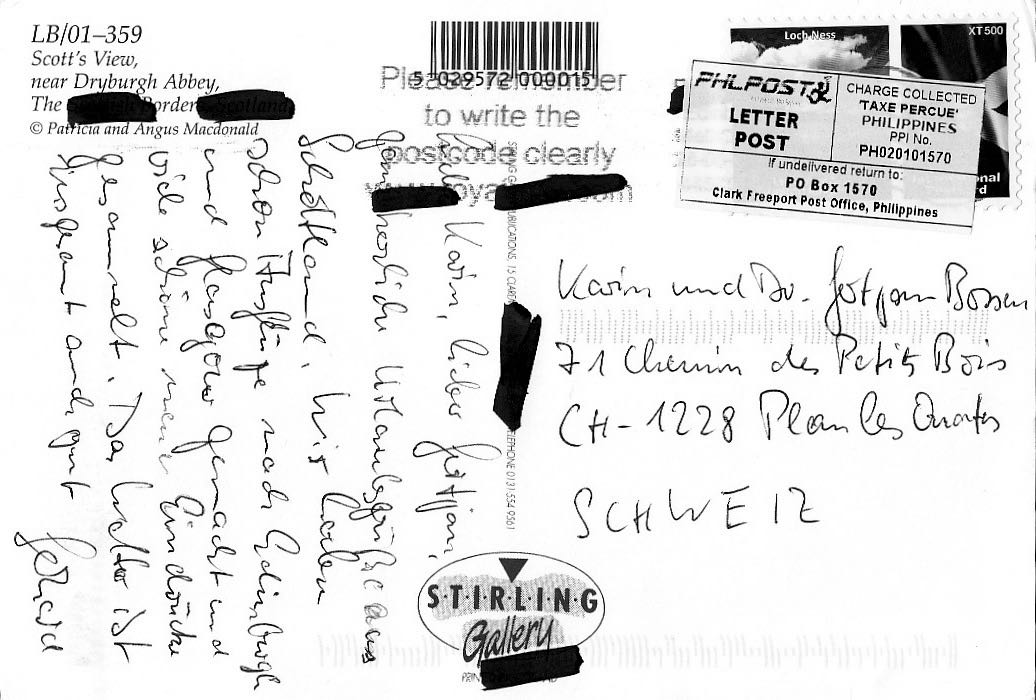 LB/01–359
Scott's View,
near Dryburgh Abbey,
The Borders,
© Patricia and Angus Macdonald
5 039572 000015
Please remember
to write the
postcode clearly
Loch Ness
XT500
PHLPOST
LETTER
POST
CHARGE COLLECTED
'TAXE PERCUE'
PHILIPPINES
PPI No.
PH020101570
If undelivered return to:
PO Box 1570
Clark Freeport Post Office, Philippines
Karin, lieber
herzliche Urlaubsgrüße aus
Schottland. Wir haben
schon Ausflüge nach Edinburgh
und Glasgow gemacht und
viele schöne neue Eindrücke
gesammelt. Das Wetter ist
und gut
Gerhard
Karin und Dr. Bossen
71 Chemin des Petits Bois
CH-1228 Plan les Ouates
SCHWEIZ
TELEPHONE 0131 554 9561
S·T·I·R·L·I·N·G
Gallery